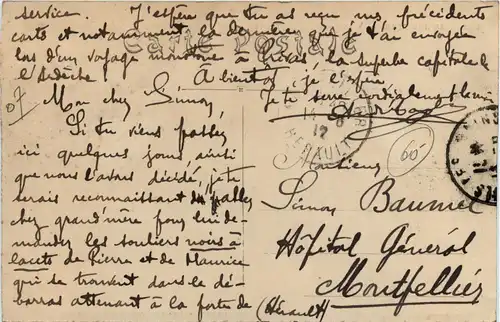 service. J'espère que tu as reçu mes précédentes
carte et notamment la dernière que je t'ai envoyée
lors d'un voyage à Privas, la superbe capitale de
l'Ardèche
A bientôt, je l'espère,
Je te serre cordialement la main
CARTE POSTALE
07 Mon cher Simon,
Si tu viens passer
ici quelques jours, ainsi
que nous l'avons décidé, je te
serais reconnaissant de
chez grand'mère pour lui de-
mander les souliers nous à
lacets de Pierre et de Maurice
qui se trouvent dans le dé-
barras attenant à la porte de
HERAULT
60
Simon Baumel
Hôpital Général
Montpellier
(Hérault)